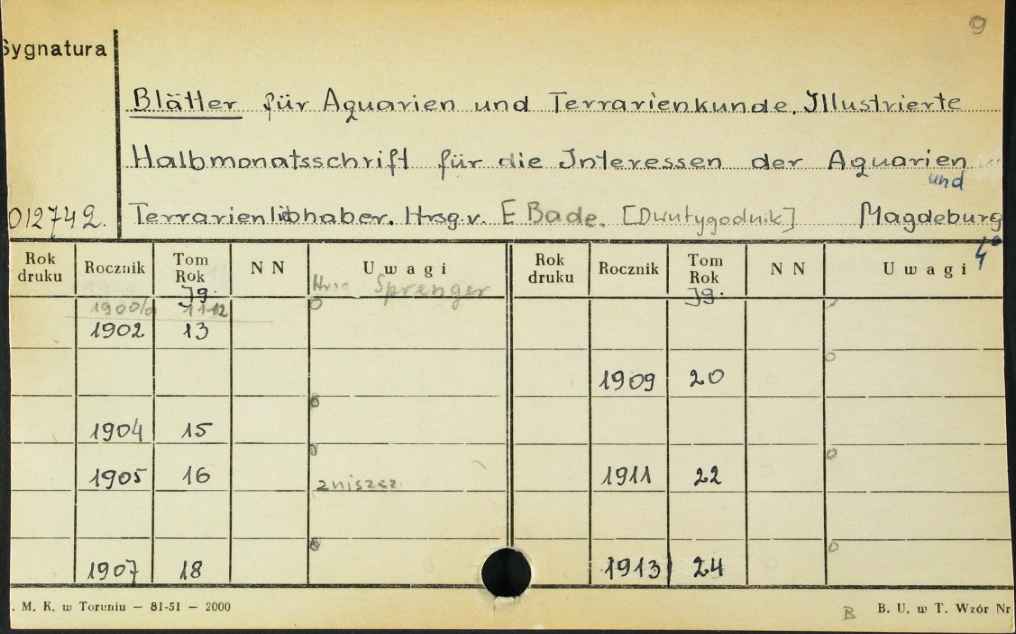 9
Sygnatura
Blätter für Aquarien und Terrarienkunde. Illustrierte
Halbmonatsschrift für die Interessen der Aquarien
und
012742. Terrarienlibhaber. Hrsg. v. E Bade. [Dwutygodnik] Magdeburg
4°
Rok druku Rocznik Tom Rok N N Uwagi Rok druku Rocznik Tom Rok N N Uwagi
Jg. Sprenger Jg.
1900/ 11-12
1902 13
1909 20
1904 15
1905 16 zniszcz. 1911 22
1907 18 1913 24
. M. K. w Toruniu — 81-51 — 2000 B B. U. w T. Wzór Nr